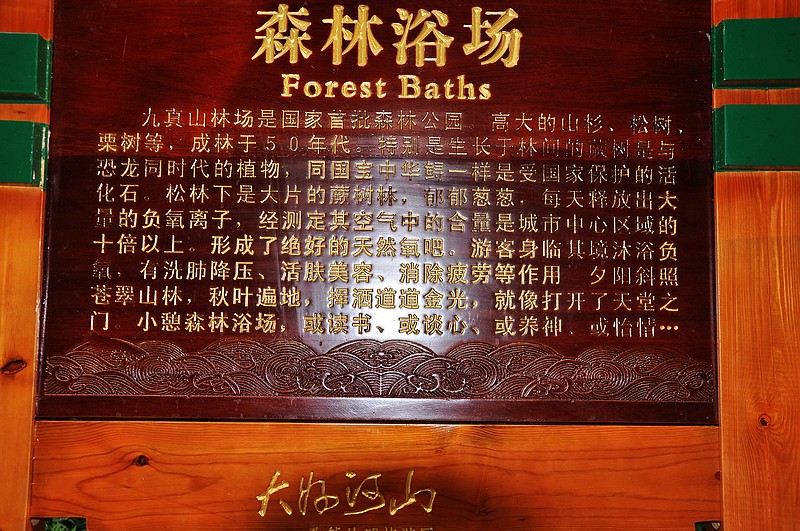 森林浴场
Forest Baths
九真山林场是国家首批森林公园。高大的山杉、松树、
栗树等，成林于50年代。特别是生长于林间的蕨树是与
恐龙同时代的植物，同国宝中华鲟一样是受国家保护的活
化石。松林下是大片的蕨树林，郁郁葱葱，每天释放出大
量的负氧离子，经测定其空气中的含量是城市中心区域的
十倍以上。形成了绝好的天然氧吧。游客身临其境沐浴负
氧，有洗肺降压、活肤美容、消除疲劳等作用 夕阳斜照
苍翠山林，秋叶遍地，挥洒道道金光，就像打开了天堂之
门。小憩森林浴场，或读书、或谈心、或养神、或怡情…
大好河山